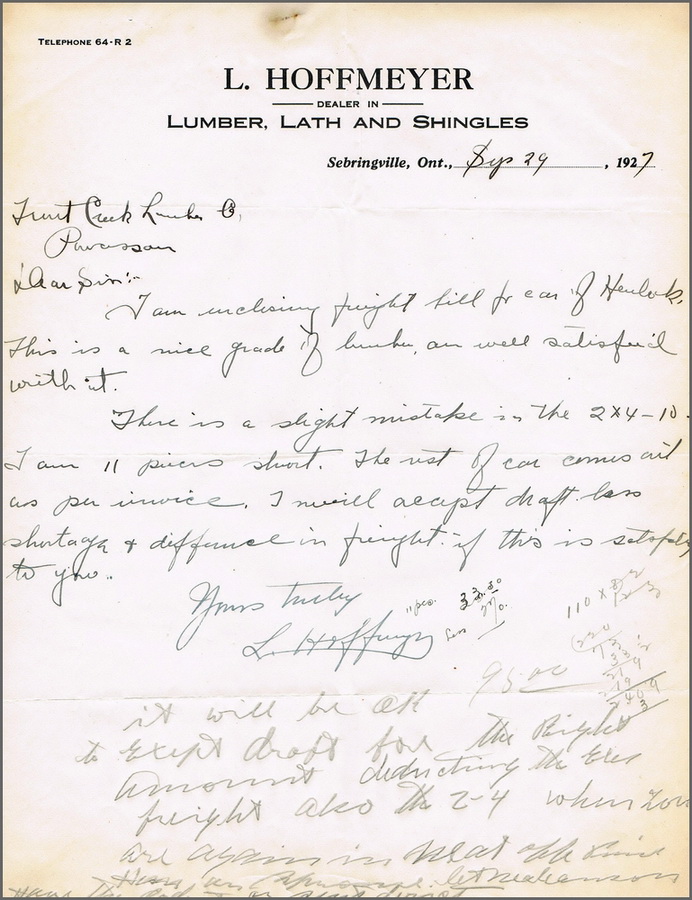 TELEPHONE 64-R 2
L. HOFFMEYER
DEALER IN
LUMBER, LATH AND SHINGLES
Sebringville, Ont., Sep 29, 1927
Trout Creek Lumber Co,
Powassan
Dear Sir:-
I am inclosing freight bill for car of Hemlock.
This is a nice grade of lumber, am well satisfied
with it.
There is a slight mistake in the 2x4-10.
I am 11 pieces short. The rest of car comes out
as per invoice. I will accept draft less
shortage & difference in freight if this is
to you.
Yours truly
L. Hoffmeyer
11 pcs.
less
110 x
95.00
it will be OK
to Exept draft for the Right
amount deducting the
freight also the 2-4 when you
are again in